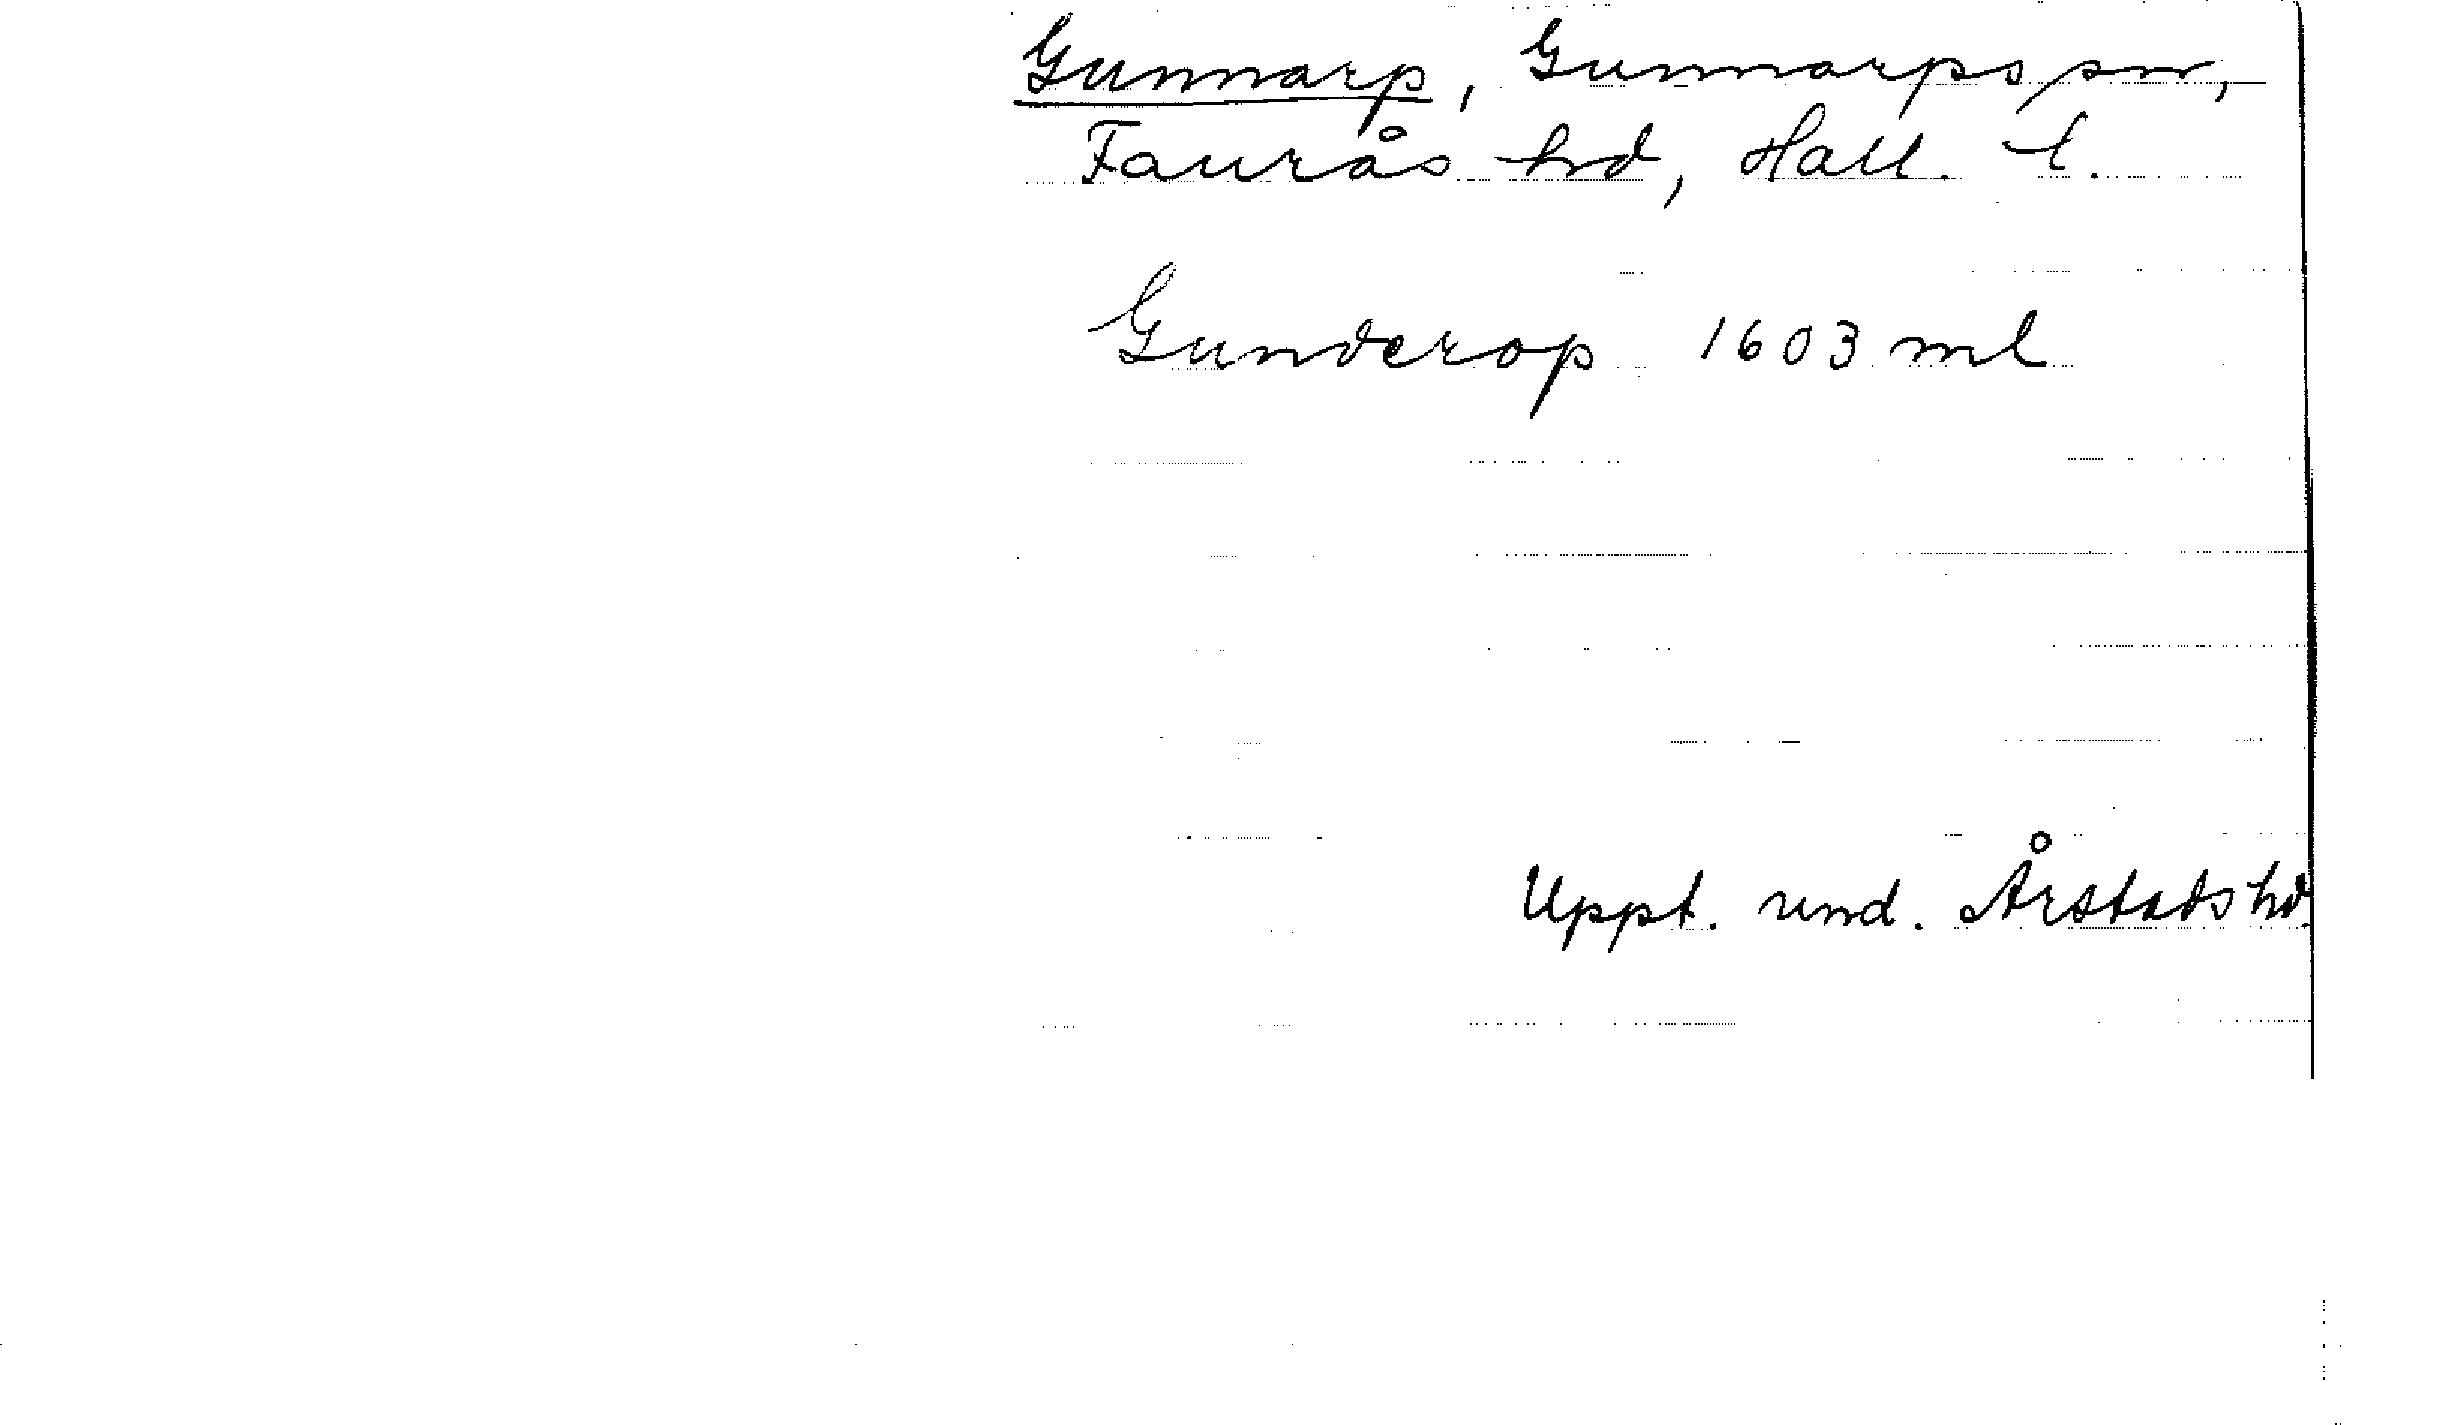 Gunnarp, Gunnarps sn,
Faurås hd, Hall. l.
Gunderop 1603 ml
Uppt. und. Årstads hd.